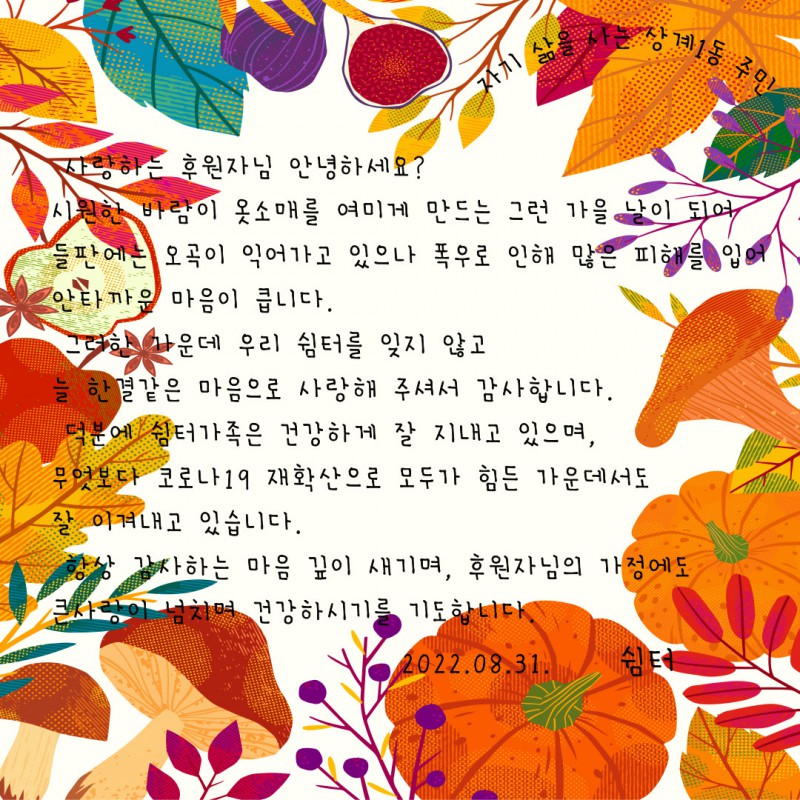 자기 삶을 사는 상계1동 주민
사랑하는 후원자님 안녕하세요?
시원한 바람이 옷소매를 여미게 만드는 그런 가을 날이 되어
들판에는 오곡이 익어가고 있으나 폭우로 인해 많은 피해를 입어
안타까운 마음이 큽니다.
그러한 가운데 우리 쉼터를 잊지 않고
늘 한결같은 마음으로 사랑해 주셔서 감사합니다.
덕분에 쉼터가족은 건강하게 잘 지내고 있으며,
무엇보다 코로나19 재확산으로 모두가 힘든 가운데서도
잘 이겨내고 있습니다.
항상 감사하는 마음 깊이 새기며, 후원자님의 가정에도
큰사랑이 넘치며 건강하시기를 기도합니다.
2022.08.31. 쉼터